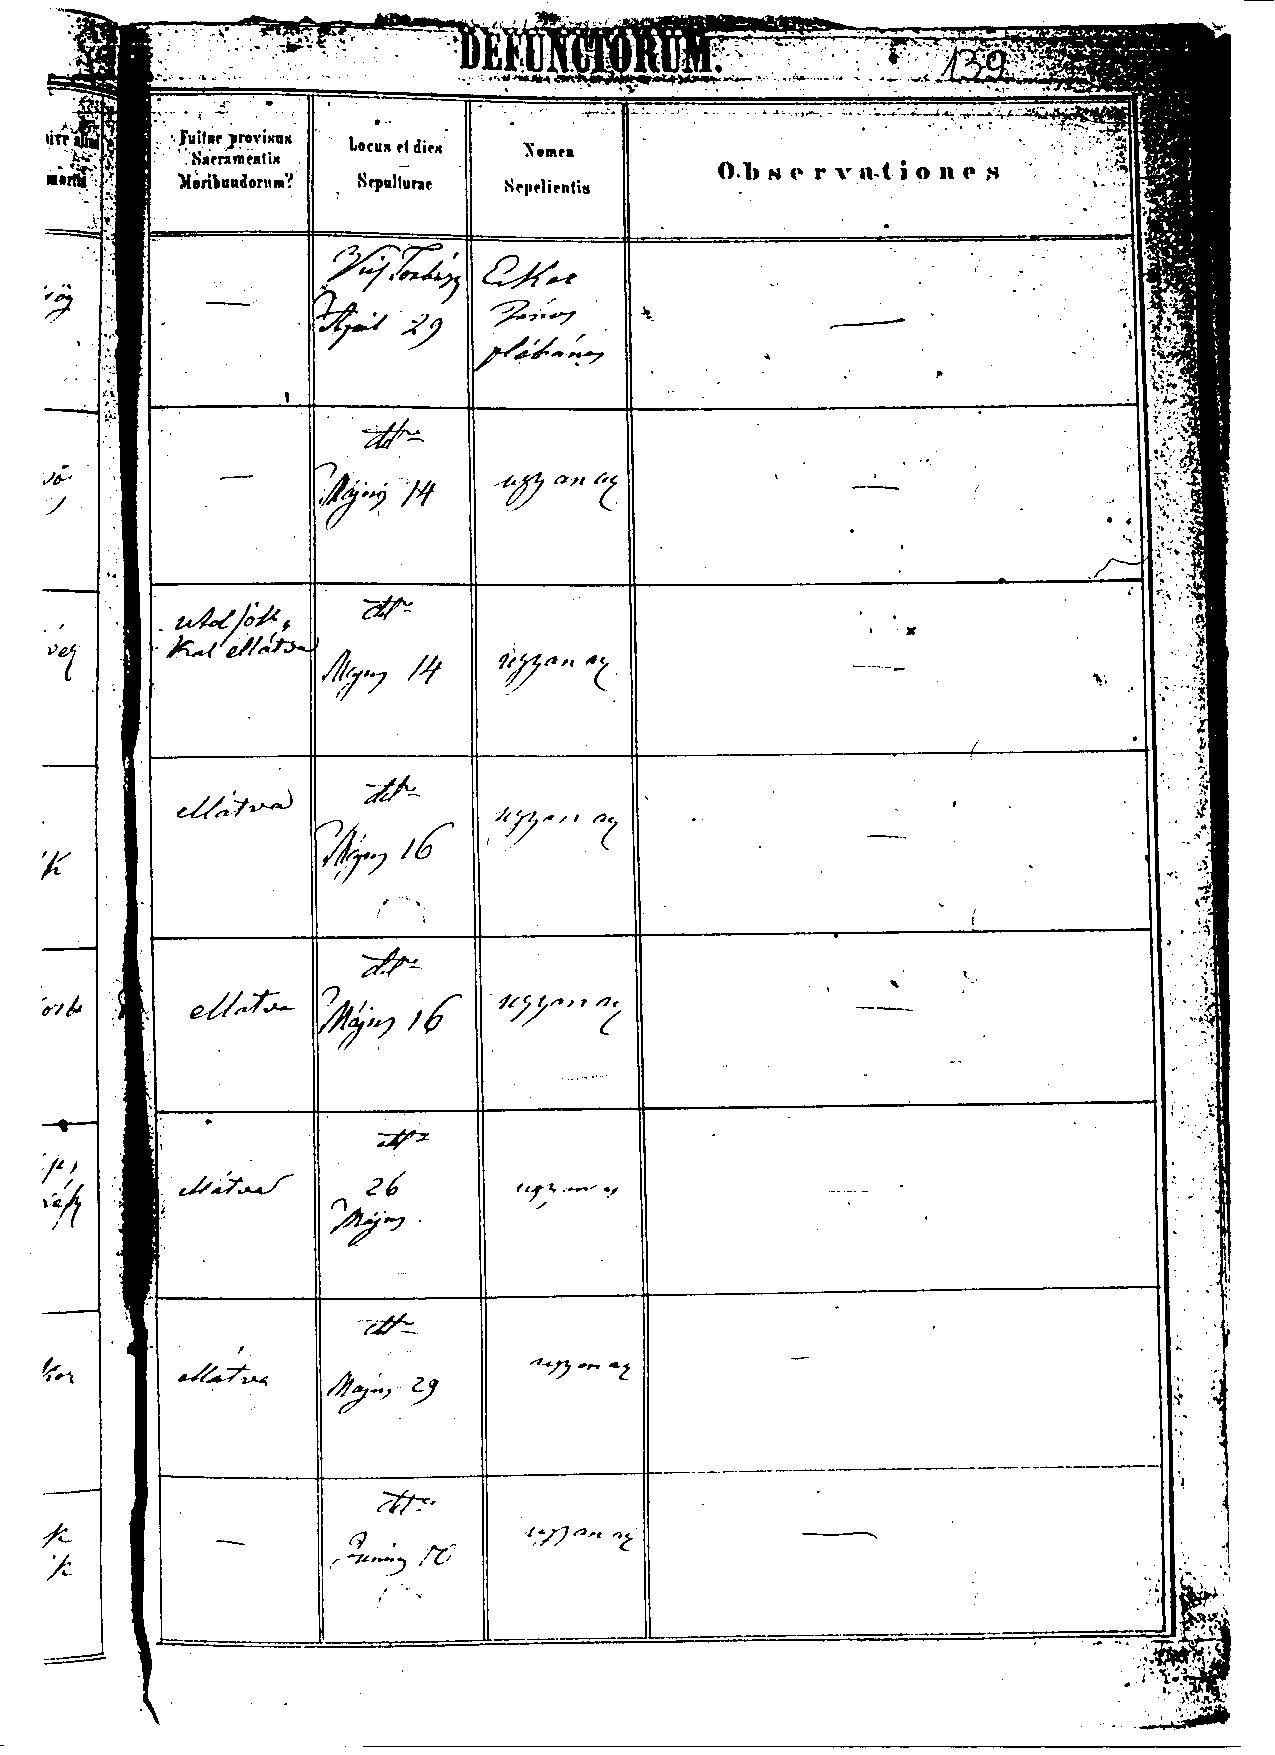 DEFUNCTORUM.
139
Fuitne provisus
Sacramentis
Moribundorum?
Locus et dies
Sepulturae
Nomen
Sepelientis
Observationes
—
April 29
János
plébános
—
—
dtto
Május 14
ugyan az
—
Kal ellátva
dtto
Május 14
ugyan az
—
ellátva
dtto
Május 16
ugyan az
—
ellátva
dtto
Május 16
ugyan az
—
ellátva
dtto
26
Május
ugyan az
—
ellátva
dtto
Május 29
ugyan az
—
—
dtto
Június 10
ugyan az
—